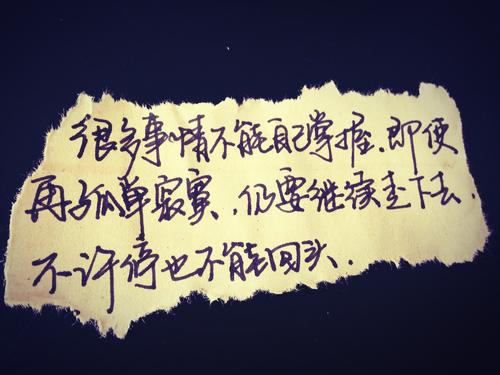 很多事情不能自己掌握.即便
再孤单寂寞、仍要继续走下去.
不许停也不能回头.